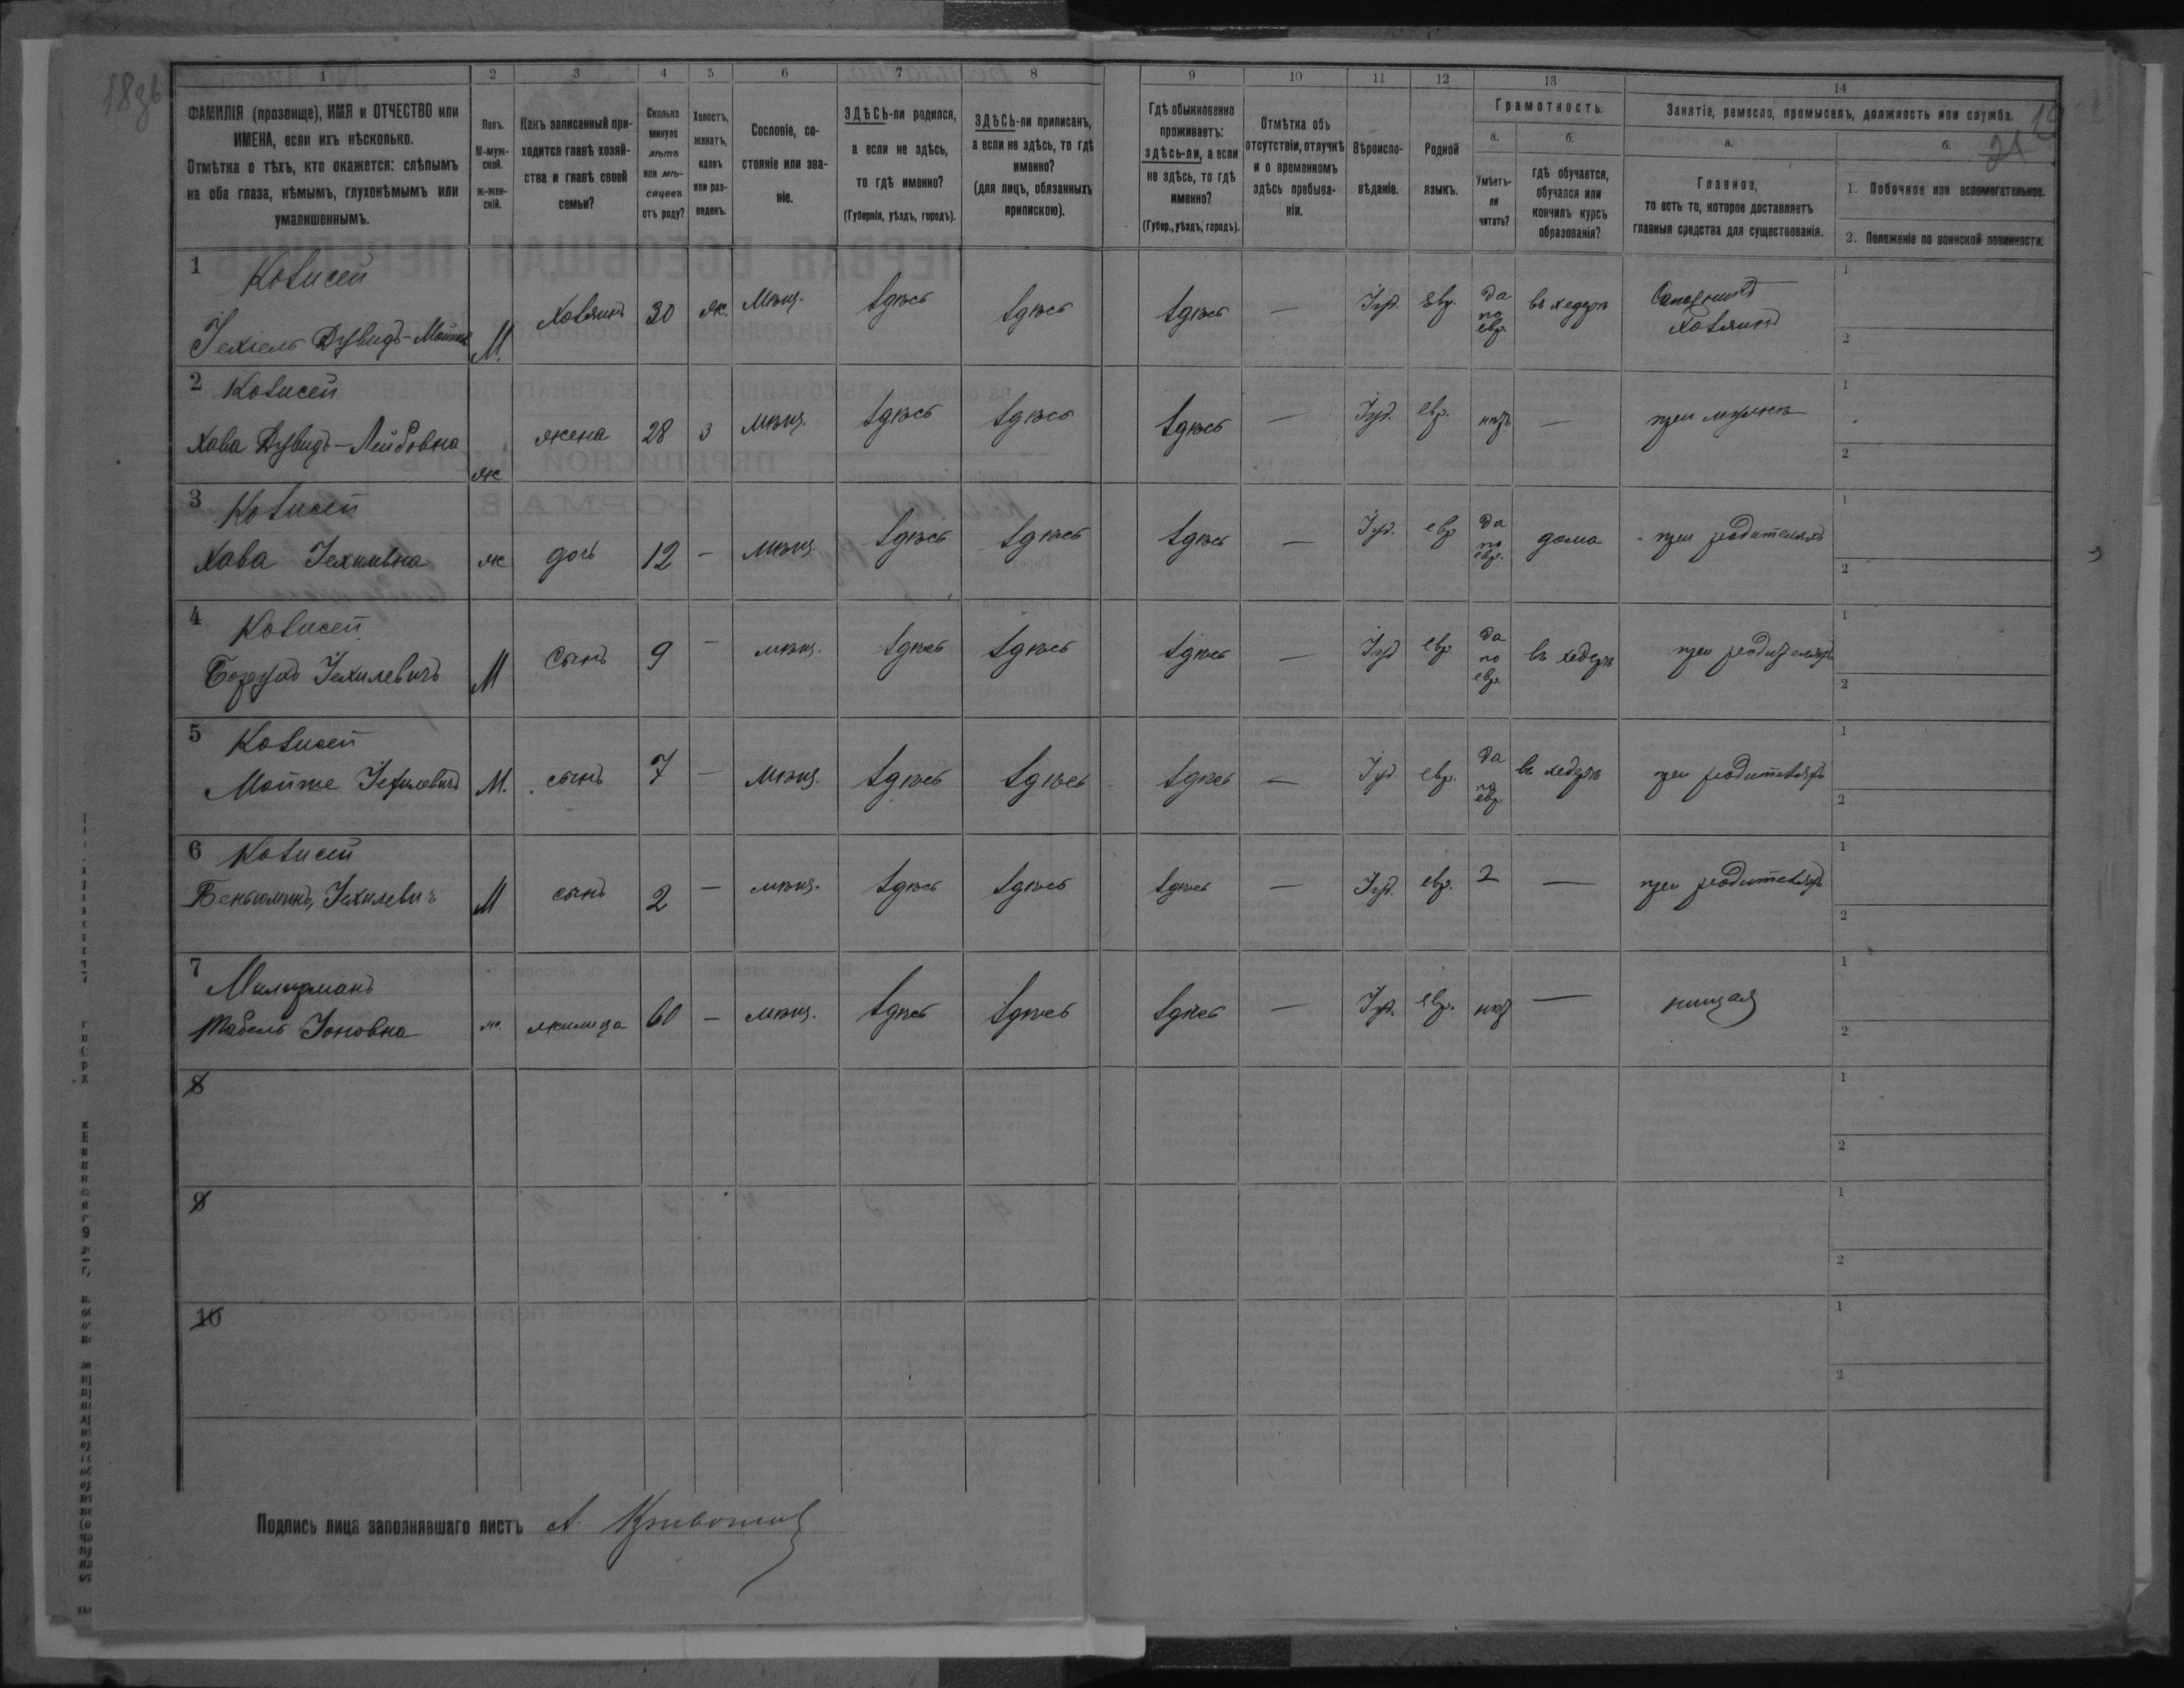 1 2 3 4 5 6 7 8 9 10 11 12 13 14
ФАМИЛІЯ (прозвище), ИМЯ и ОТЧЕСТВО или
ИМЕНА, если ихъ нѣсколько.
Отмѣтка о тѣхъ, кто окажется: слѣпымъ
на оба глаза, нѣмымъ, глухонѣмымъ или
умалишеннымъ.
Полъ.
М-муж-
ской.
ж-жен-
скій.
Какъ записанный при-
ходится главѣ хозяй-
ства и главѣ своей
семьи?
Сколько
минуло
лѣтъ
или мѣ-
сяцевъ
отъ роду?
Холостъ,
женатъ,
вдовъ
или раз-
веденъ.
Сословіе, со-
стояніе или зва-
ніе.
ЗДѢСЬ-ли родился,
а если не здѣсь,
то гдѣ именно?
(Губернія, уѣздъ, городъ).
ЗДѢСЬ-ли приписанъ,
а если не здѣсь, то гдѣ
именно?
(для лицъ, обязанныхъ
припискою).
Гдѣ обыкновенно
проживаетъ:
здѣсь-ли, а если
не здѣсь, то гдѣ
именно?
(Губер., уѣздъ, городъ).
Отмѣтка объ
отсутствіи, отлучкѣ
и о временномъ
здѣсь пребыва-
ніи.
Вѣроиспо-
вѣданіе.
Родной
языкъ.
Грамотность.
а.
Умѣетъ-
ли
читать?
б.
Гдѣ обучается,
обучался или
кончилъ курсъ
образованія?
Занятіе, ремесло, промыселъ, должность или служба.
а.
Главное,
то есть то, которое доставляетъ
главныя средства для существованія.
б.
1. Побочное или вспомогательное.
2. Положеніе по воинской повинности.
1 Козисей
Іехіель Дувидъ- М. Хозяинъ 30 ж. мѣщ. здѣсь здѣсь здѣсь — Іуд. евр. да по евр. въ хедерѣ
Хозяинъ
1
2
2 Козисей
Хава Дувидъ-Лейбовна ж жена 28 з мѣщ. здѣсь здѣсь здѣсь — Іуд. евр. нѣтъ — при мужѣ
1
2
3 Козисей
Хава Іехилевна ж дочь 12 — мѣщ. здѣсь здѣсь здѣсь — Іуд. евр да по евр. дома при родителяхъ
1
2
4 Козисей
Іехилевичъ М сынъ 9 — мѣщ. здѣсь здѣсь здѣсь — Іуд евр. да по евр. въ хедерѣ при родителяхъ
1
2
5 Козисей
Мойше Іехилевичъ М. сынъ 7 — мѣщ. здѣсь здѣсь здѣсь — Іуд. евр. да по евр. въ хедерѣ при родителяхъ
1
2
6 Козисей
Беньюминъ Іехилевичъ М сынъ 2 — мѣщ. здѣсь здѣсь здѣсь — Іуд. евр. 2 — при родителяхъ
1
2
7
Іоновна ж. жилица 60 — мѣщ. здѣсь здѣсь здѣсь — Іуд. евр. нѣтъ — нищая
1
2
8
1
2
9
1
2
10
1
2
Подпись лица заполнявшаго листъ А.